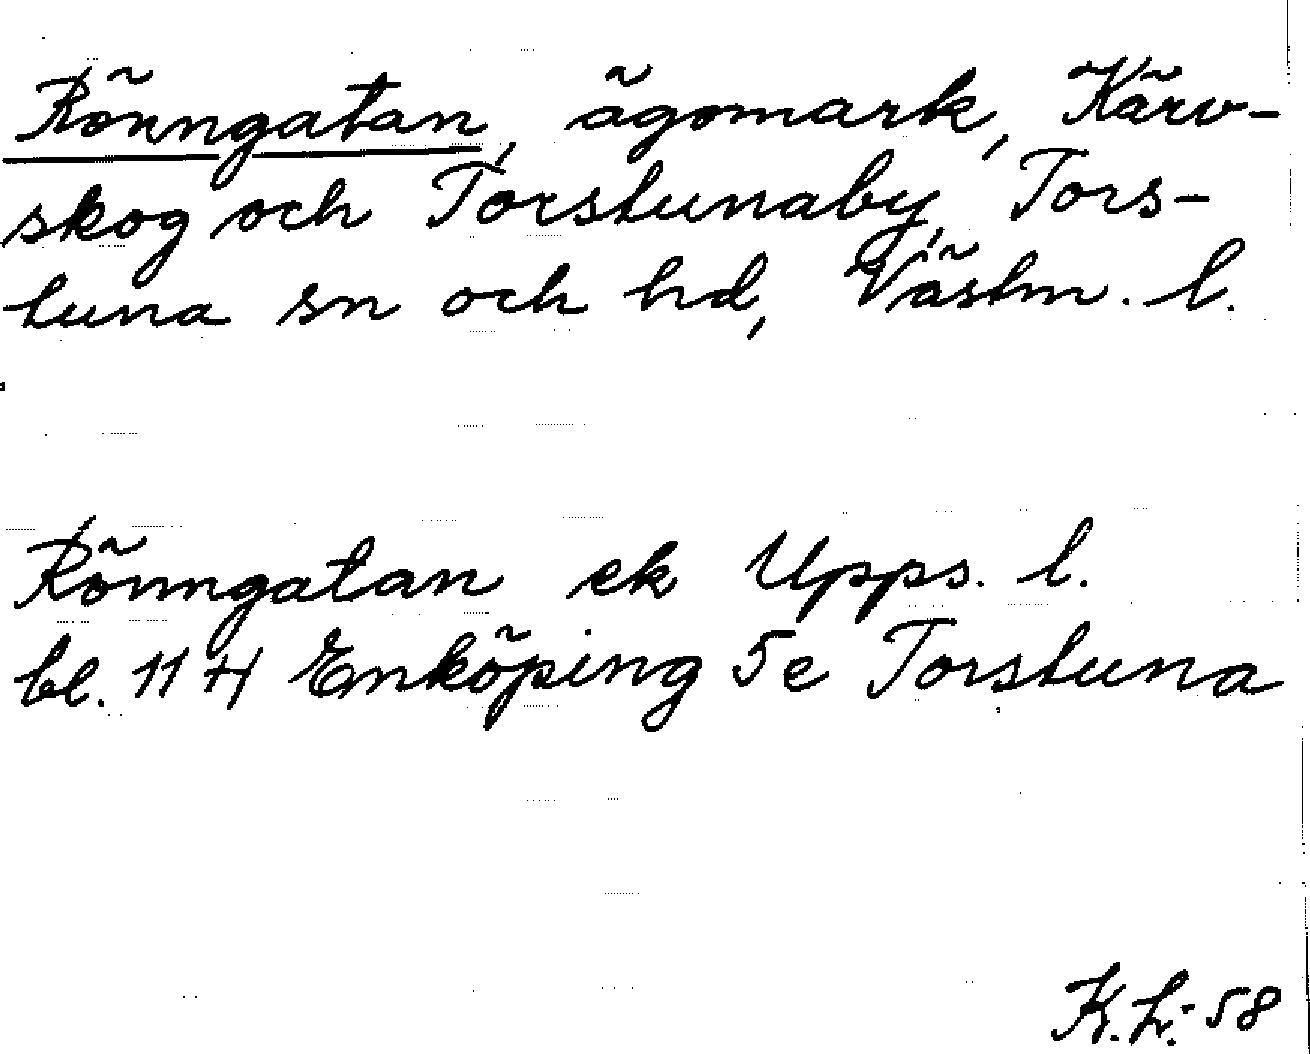 Rönngatan, ägomark, Kärv-
skog och Torstunaby, Tors-
tuna sn och hd, Västm. l.
Rönngatan ek Upps. l.
bl. 11 H Enköping 5e Torstuna
K. Lr. -58